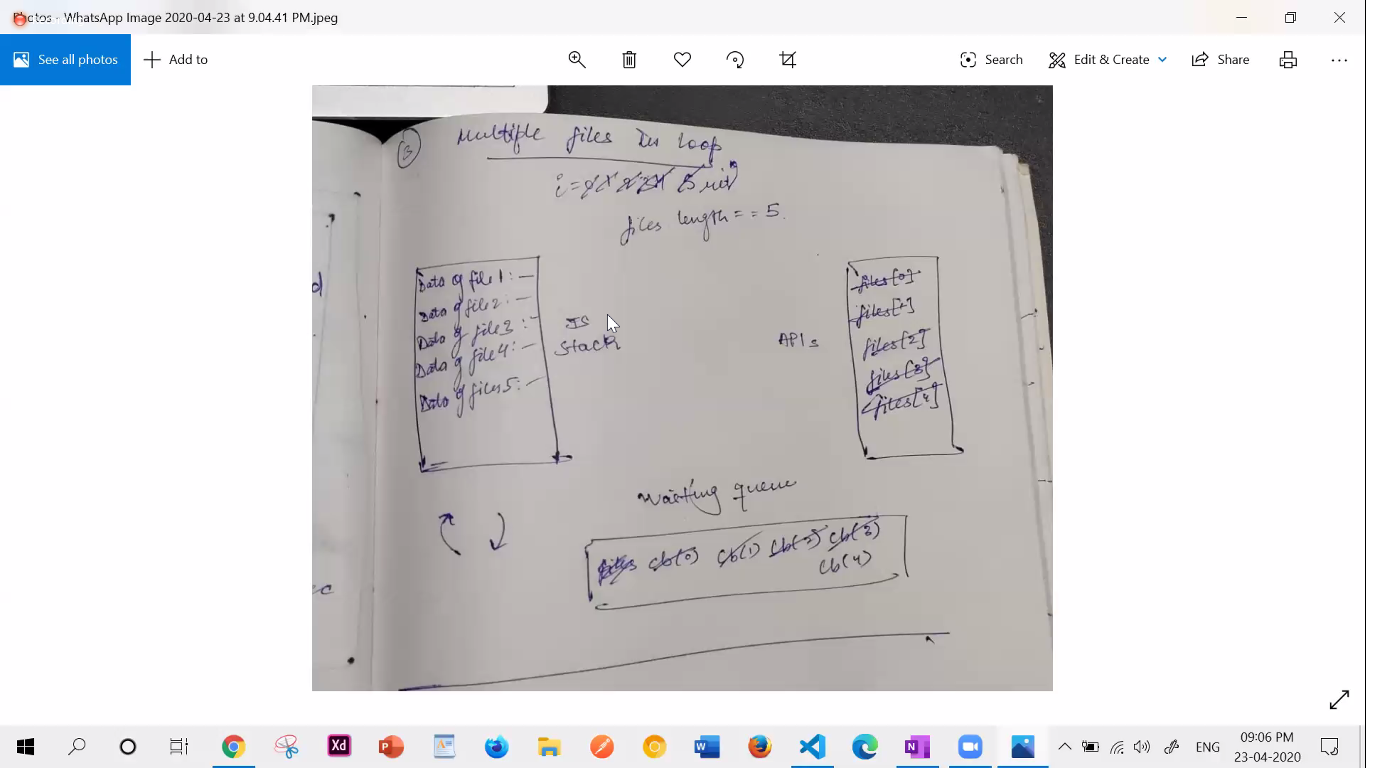 Photos - WhatsApp Image 2020-04-23 at 9.04.41 PM.jpeg
See all photos
Add to
Search
Edit & Create
Share
B
Multiple files In loop
i =
files length == 5.
Data of file 1: —
Data of file 2: —
Data of file 3: —
Data of file 4: —
Data of files 5: —
JS
Stack
APIs
files[0]
files[1]
files[2]
files[3]
files[4]
Waiting queue
files cb(0) cb(1) cb(2) cb(3)
cb(4)
d
Xd
ENG
09:06 PM
23-04-2020